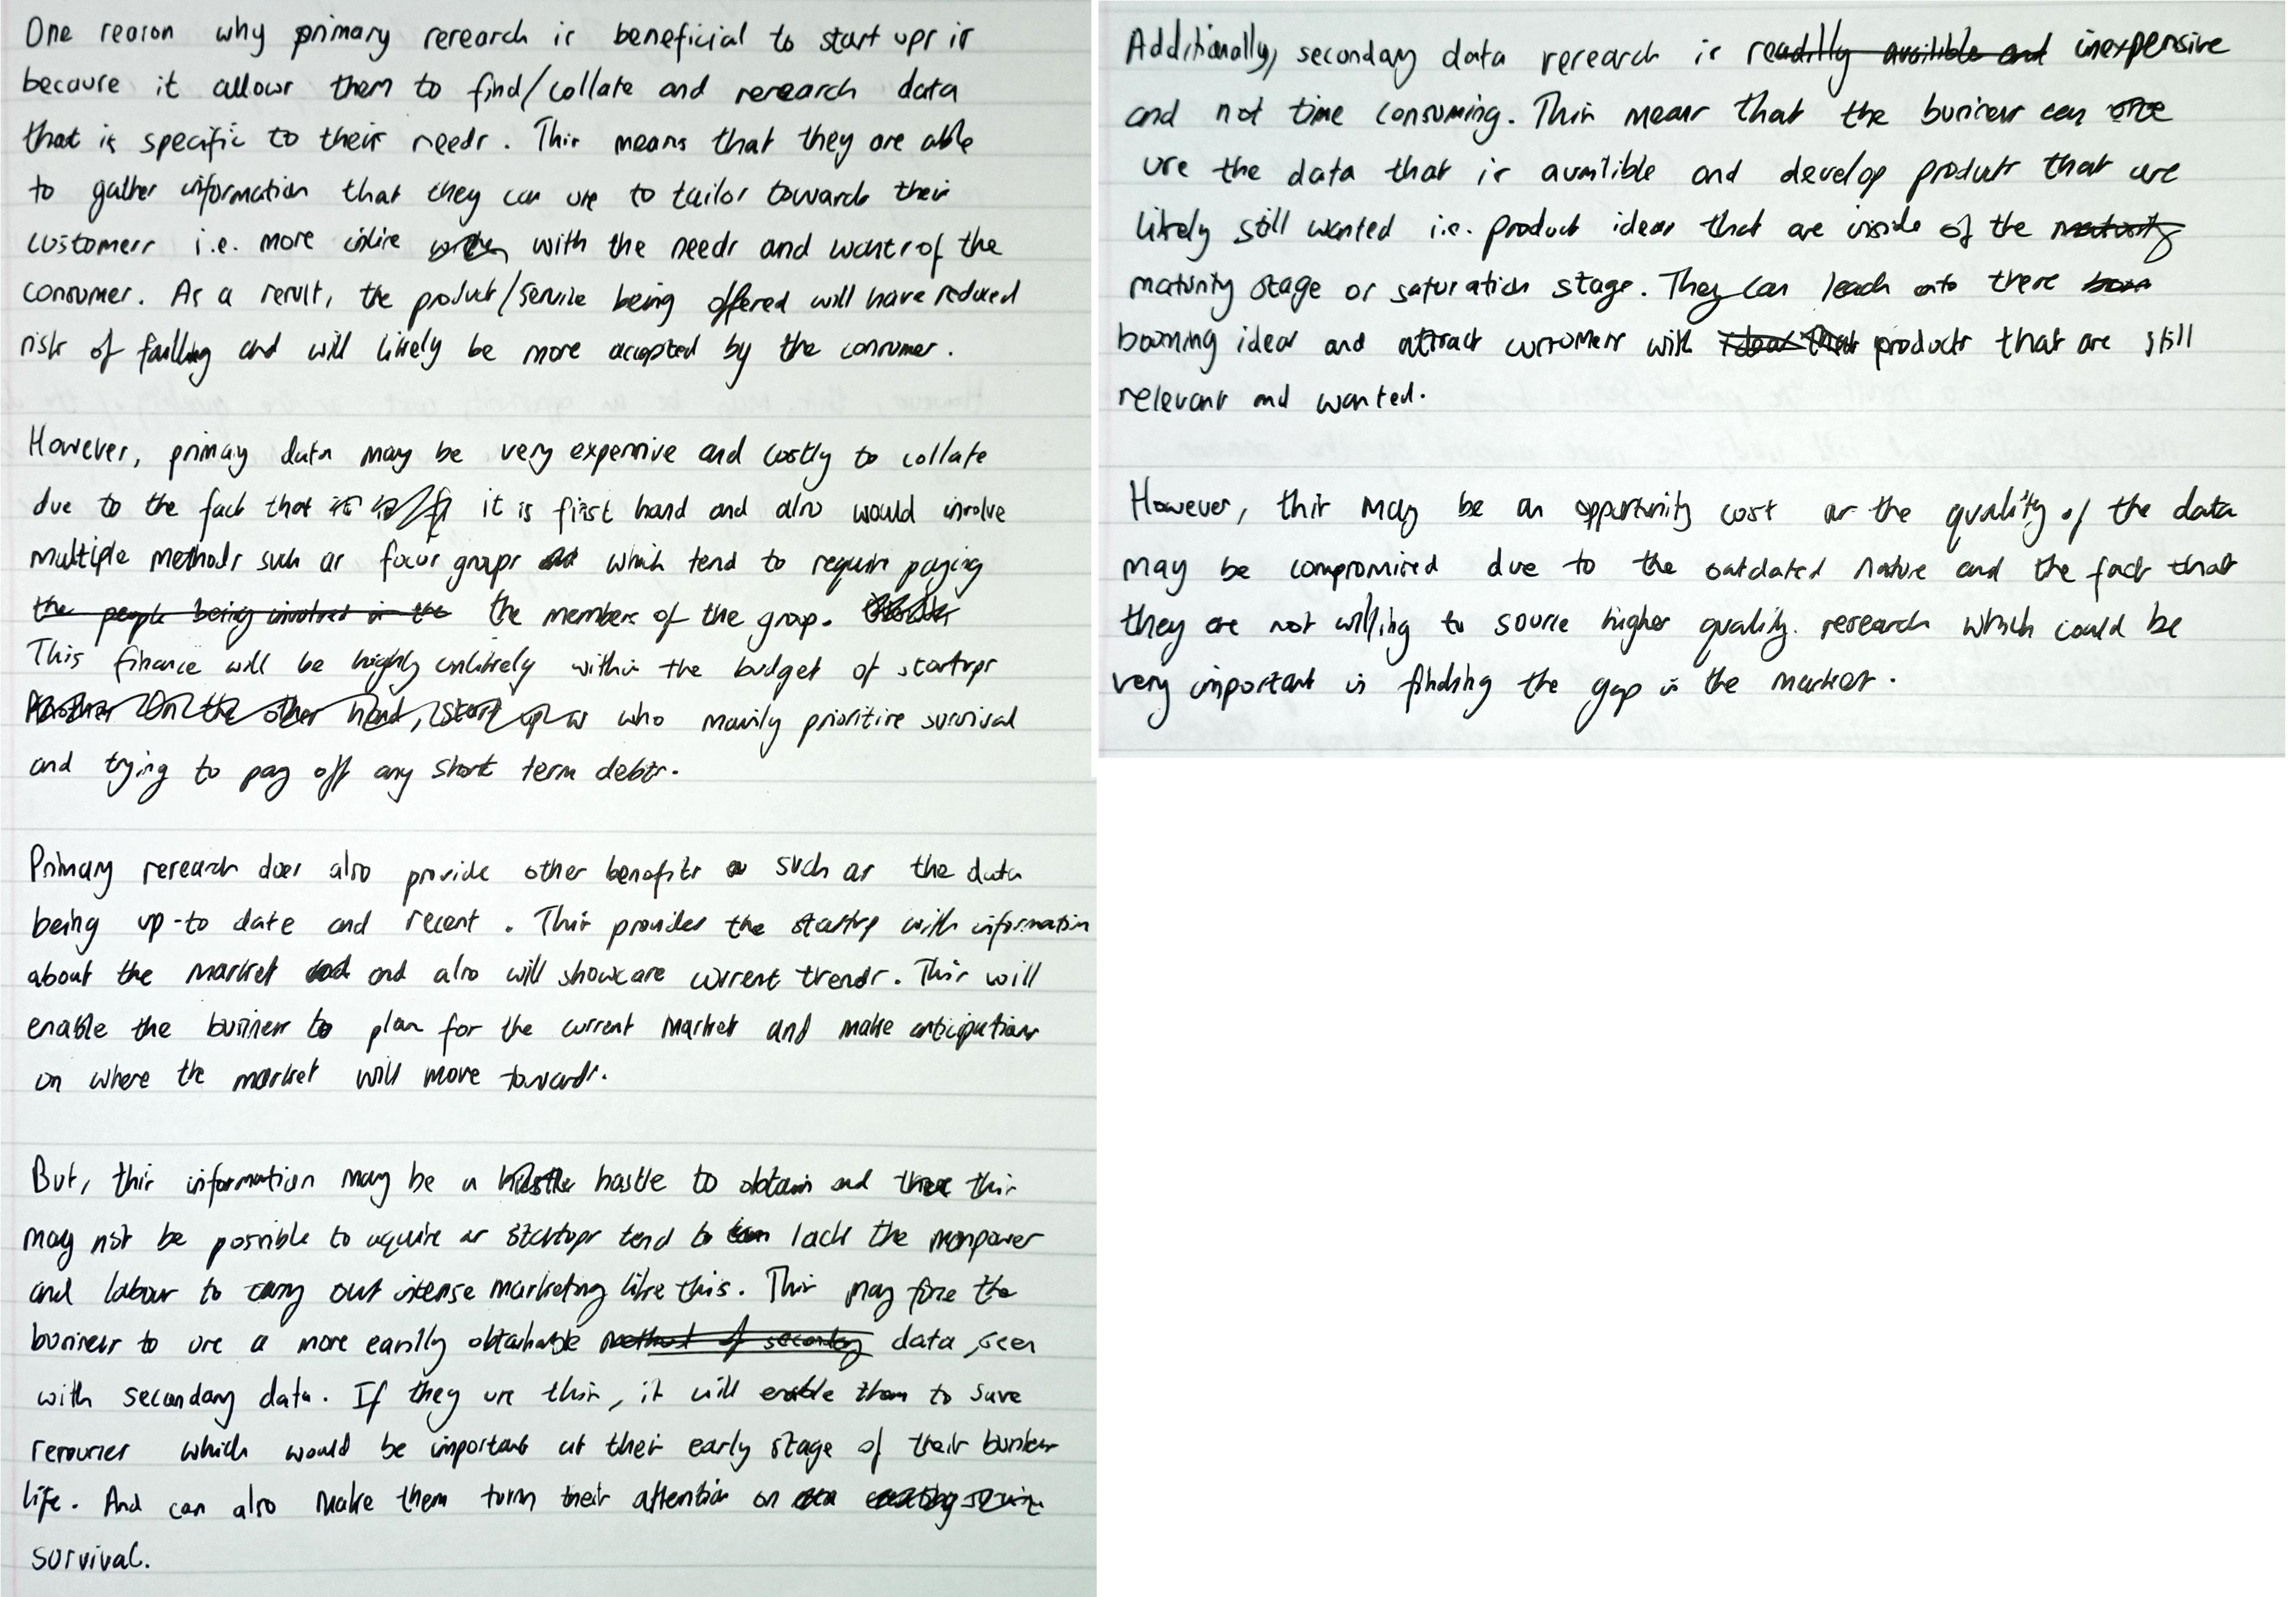 One reason why primary research is beneficial to start ups is
because it allows them to find/collate and research data
that is specific to their needs. This means that they are able
to gather information that they can use to tailor towards their
customers i.e. more inline with the needs and wants of the
consumer. As a result, the product/service being offered will have reduced
risk of failling and will likely be more accepted by the consumer.
However, primary data may be very expensive and costly to collate
due to the fact that it is first hand and also would involve
multiple methods such as focus groups which tend to require paying
the people being involved in the the members of the group.
This finance will be highly unlikely within the budget of startups
Another On the other hand, start ups who mainly prioritise survival
and trying to pay off any short term debts.
Primary research does also provide other benefits such as the data
being up-to date and recent. This provides the startup with information
about the market and also will showcase current trends. This will
enable the business to plan for the current market and make anticipations
on where the market will move towards.
But, this information may be a hastle to obtain and this
may not be possible to aquire as startups tend to lack the manpower
and labour to carry out intense marketing like this. This may force the
business to use a more easilly obtainable method of secondary data, seen
with secondary data. If they use this, it will enable them to save
resources which would be important at their early stage of their business
life. And can also make them turn their attention on
survival.
Additionally, secondary data research is readilly availible and inexpensive
and not time consuming. This means that the business can
use the data that is availible and develop products that are
likely still wanted i.e. product ideas that are inside of the maturity
maturity stage or saturation stage. They can leach onto these
booming ideas and attract customers with ideas that products that are still
relevant and wanted.
However, this may be an opportunity cost as the quality of the data
may be compromised due to the outdated nature and the fact that
they are not willing to source higher quality. research which could be
very important in finding the gap in the market.